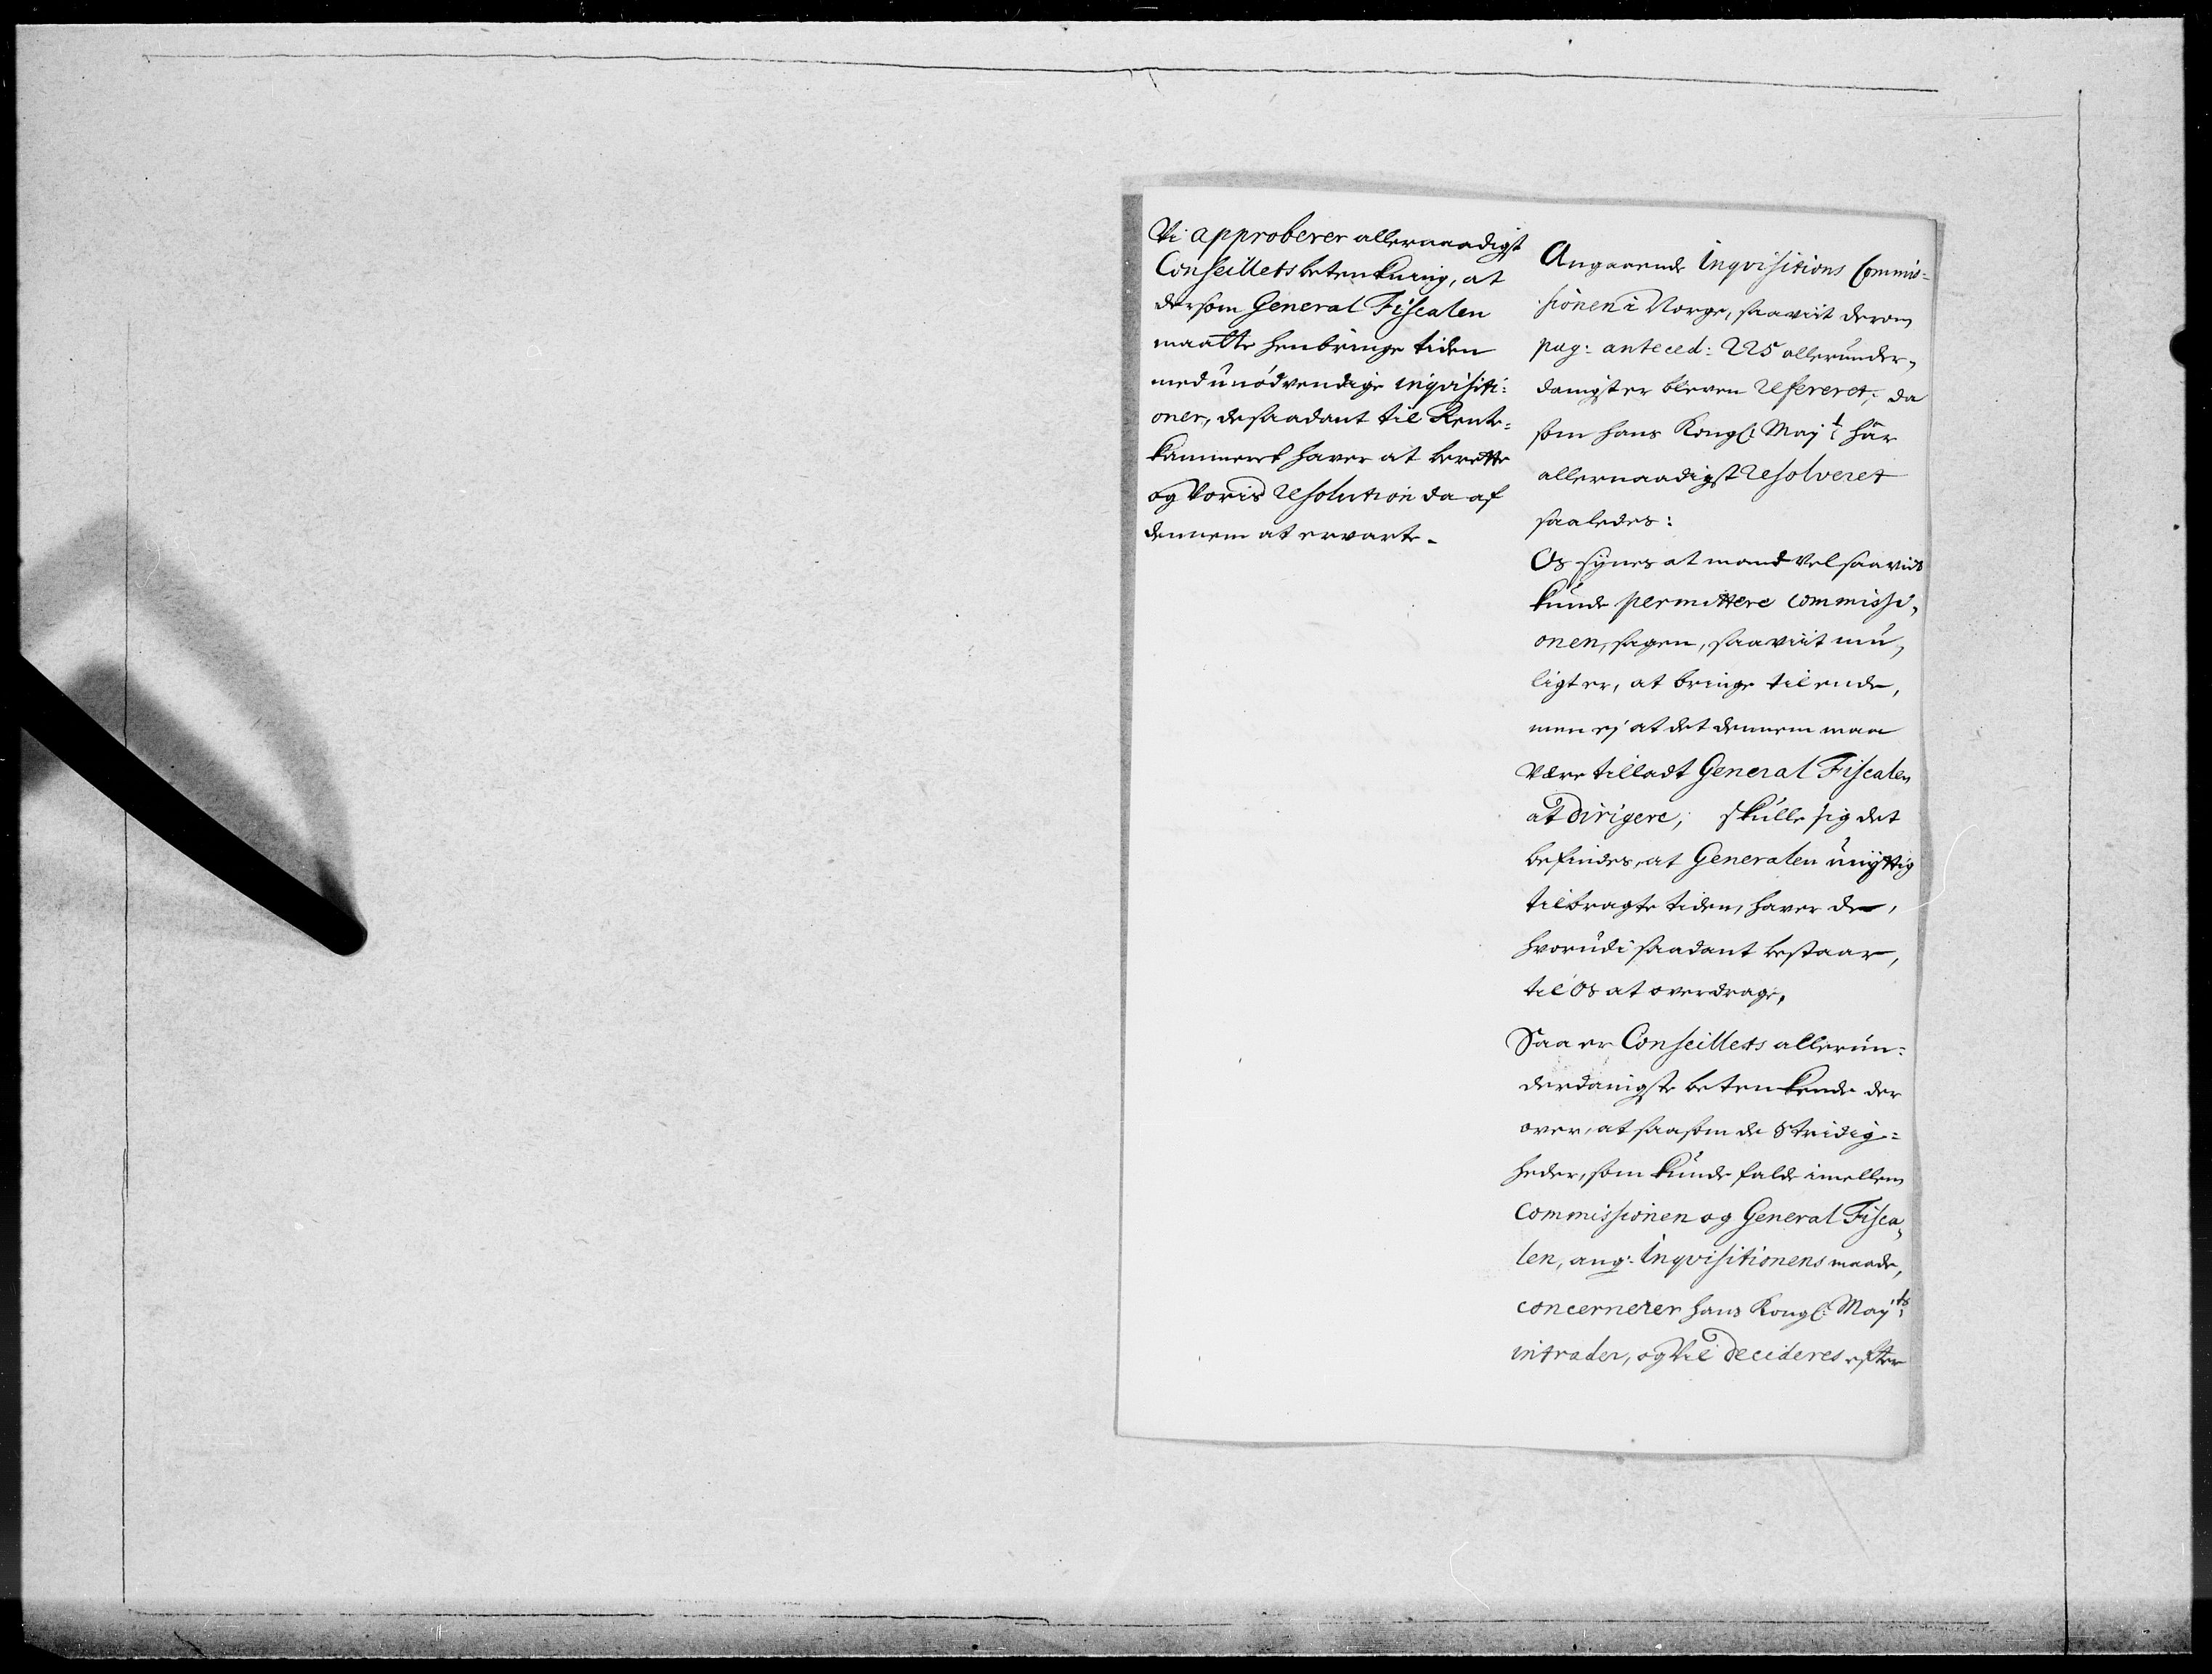 Vi approberer allernaadigst
Conseillets betenkning, at
dersom General Fiscalen
maatte henbringe tiden
med unødvendige inqvisiti=
oner, de saadant til Rente=
kammeret haver at berette
og Voris Resolution da af
dennem at ervarte.
Angaaende Inqvisitions Commis=
sionen i Norge, saaviit derom
pag: anteced: 225 allerunder,
danigst er bleven refereret; da
som hans Kongl: Mayt har
allernaadigst resolveret
saaledes:
Os synes at mand vel saavidt
kunde permittere Commissi,
onen, sagen, saaviit mu,
ligt er, at bringe til ende,
men ej at det dennem maa
være tilladt General Fiscalen
at dirigere; skulle sig det
befindes, at Generalen unyttig
tilbragte tiden, haver de,
hvorudi saadant bestaar,
til Os at overdrage.
Saa er Conseillets allerun=
derdanigste betenkende der
over, at saasom de Stridig=
heder, som kunde falde imellem
Commissionen og General Fisca,
len, ang: Inqvisitionens maade,
concernerer hans Kongl: Mayts
intrader, og Vil decideres efter